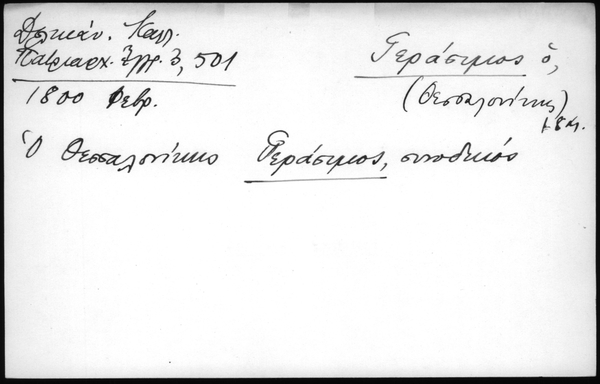 Δελικάν. Καλλ.
Πατριαρχ. Ἔγγρ. 3, 501
1800 Φεβρ.
Γεράσιμος ὁ,
(Θεσσαλονίκης)
Ὁ Θεσσαλονίκης Γεράσιμος, συνοδικός